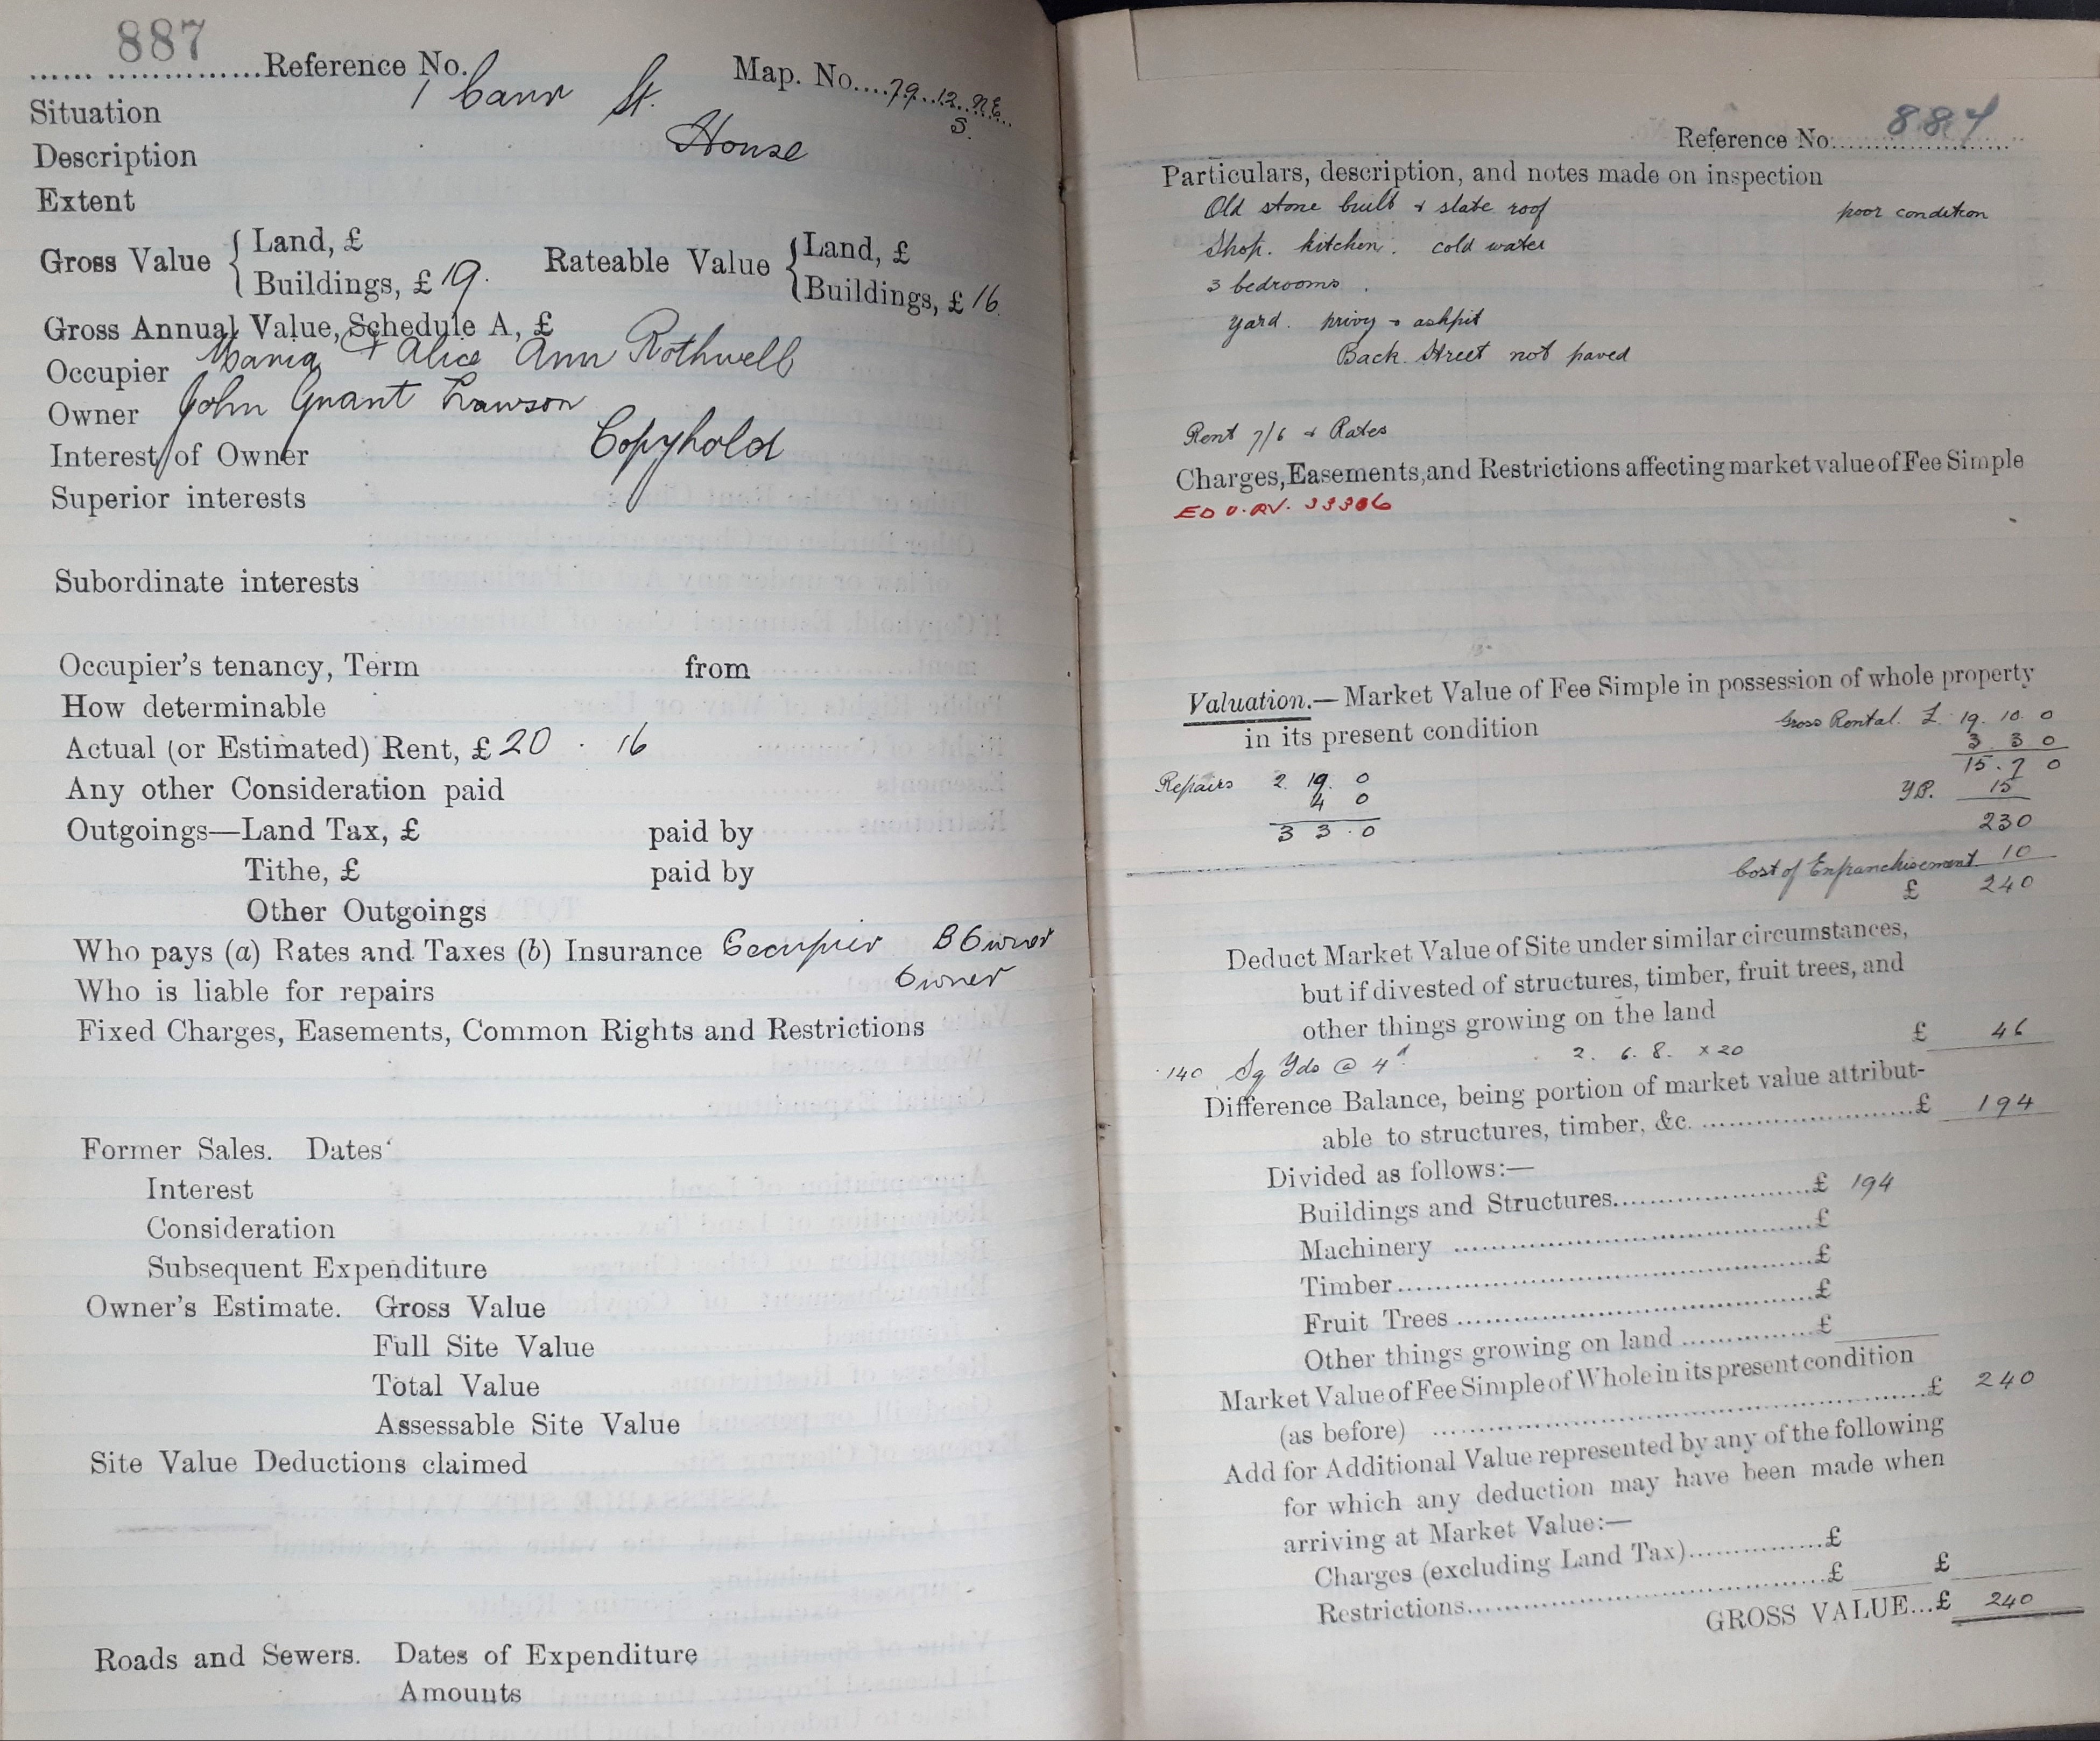 887
Reference No.
Map. No....79.12.NE
S.
Situation 1 Carr St.
Description House
Extent
Gross Value { Land, £ Rateable Value { Land, £
Buildings, £ 19. Buildings, £ 16
Gross Annual Value, Schedule A, £
Occupier Maria + Alice Ann Rothwell
Owner John Grant Lawson
Interest of Owner Copyhold
Superior interests
Subordinate interests
Occupier's tenancy, Term from
How determinable
Actual (or Estimated) Rent, £ 20 . 16
Any other Consideration paid
Outgoings—Land Tax, £ paid by
Tithe, £ paid by
Other Outgoings
Who pays (a) Rates and Taxes (b) Insurance Occupier B Owner
Who is liable for repairs Owner
Fixed Charges, Easements, Common Rights and Restrictions
Former Sales. Dates
Interest
Consideration
Subsequent Expenditure
Owner's Estimate. Gross Value
Full Site Value
Total Value
Assessable Site Value
Site Value Deductions claimed
Roads and Sewers. Dates of Expenditure
Amounts
Reference No.
Particulars, description, and notes made on inspection
Old stone built + slate roof poor condition
Shop. kitchen. cold water
3 bedrooms.
Yard. privy + ashpit
Back Street not paved
Rent 7/6 + Rates
Charges, Easements, and Restrictions affecting market value of Fee Simple
33306
Valuation.—Market Value of Fee Simple in possession of whole property
in its present condition
Gross Rental. £ 19. 10. 0
3. 3 0
15. 7 0
Repairs 2. 19. 0
4 0
3 3. 0
YP. 15
230
Cost of Enfranchisement 10
£ 240
Deduct Market Value of Site under similar circumstances,
but if divested of structures, timber, fruit trees, and
other things growing on the land £ 46
140 Sq Yds @ 4d 2. 6. 8. x 20
Difference Balance, being portion of market value attribut-
able to structures, timber, &c. £ 194
Divided as follows:—
Buildings and Structures £ 194
Machinery £
Timber £
Fruit Trees £
Other things growing on land £
Market Value of Fee Simple of Whole in its present condition
(as before) £ 240
Add for Additional Value represented by any of the following
for which any deduction may have been made when
arriving at Market Value:—
Charges (excluding Land Tax) £
Restrictions £ £
GROSS VALUE...£ 240